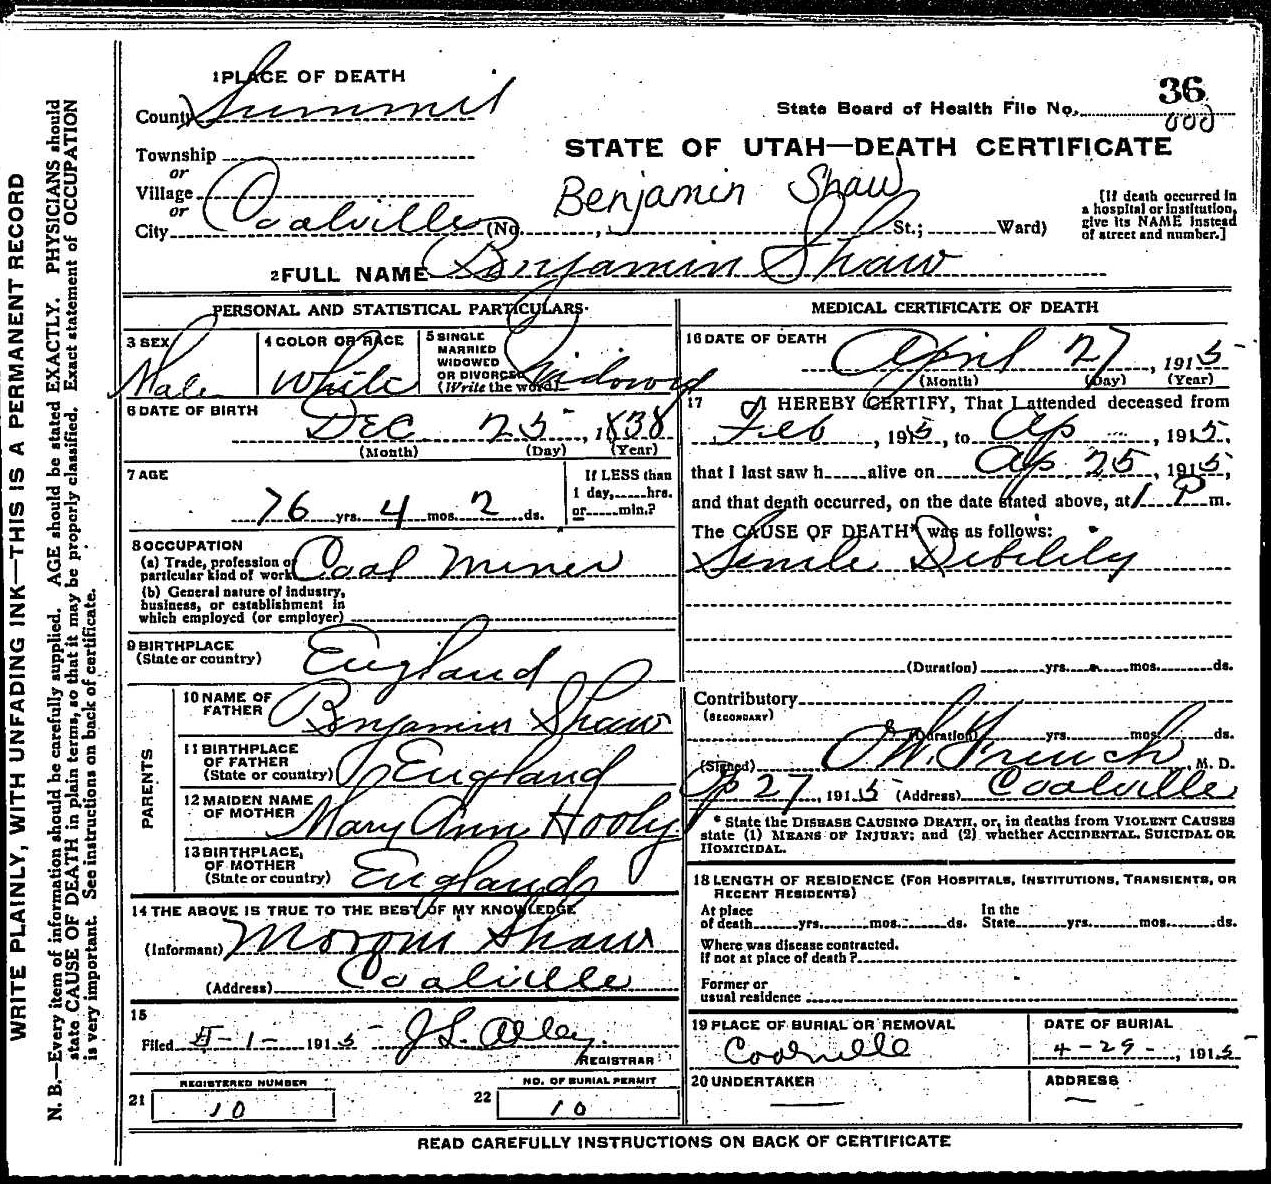 1 PLACE OF DEATH
County Summit
State Board of Health File No. 36
000
STATE OF UTAH—DEATH CERTIFICATE
Township
or
Village
or
City Coalville (No. , St.; Ward)
Benjamin Shaw
[If death occurred in
a hospital or institution,
give its NAME instead
of street and number.]
2 FULL NAME Benjamin Shaw
PERSONAL AND STATISTICAL PARTICULARS
3 SEX Male
4 COLOR OR RACE White
5 SINGLE
MARRIED
WIDOWED
OR DIVORCED
(Write the word) Widowed
6 DATE OF BIRTH
Dec 25, 1838
(Month) (Day) (Year)
7 AGE
76 yrs. 4 mos. 2 ds.
If LESS than
1 day, hrs.
or min.?
8 OCCUPATION
(a) Trade, profession or
particular kind of work Coal Miner
(b) General nature of industry,
business, or establishment in
which employed (or employer)
9 BIRTHPLACE
(State or country) England
PARENTS
10 NAME OF
FATHER Benjamin Shaw
11 BIRTHPLACE
OF FATHER
(State or country) England
12 MAIDEN NAME
OF MOTHER Mary Ann Hooly
13 BIRTHPLACE,
OF MOTHER
(State or country) England
14 THE ABOVE IS TRUE TO THE BEST OF MY KNOWLEDGE
(Informant) Moroni Shaw
(Address) Coalville
15
Filed 5-1-1915 J L Alley
REGISTRAR
REGISTERED NUMBER
21 10
NO. OF BURIAL PERMIT
22 10
MEDICAL CERTIFICATE OF DEATH
16 DATE OF DEATH
April 27, 1915
(Month) (Day) (Year)
17 I HEREBY CERTIFY, That I attended deceased from
Feb, 1915, to Ap, 1915,
that I last saw h alive on Ap 25, 1915,
and that death occurred, on the date stated above, at 1 P m.
The CAUSE OF DEATH* was as follows:
Senile Debility
(Duration) yrs. mos. ds.
Contributory
(SECONDARY)
(Duration) yrs. mos. ds.
(Signed) O W French, M. D.
Ap 27, 1915 (Address) Coalville
* State the DISEASE CAUSING DEATH, or, in deaths from VIOLENT CAUSES
state (1) MEANS OF INJURY; and (2) whether ACCIDENTAL, SUICIDAL OR
HOMICIDAL.
18 LENGTH OF RESIDENCE (FOR HOSPITALS, INSTITUTIONS, TRANSIENTS, OR
RECENT RESIDENTS)
At place
of death yrs. mos. ds.
In the
State yrs. mos. ds.
Where was disease contracted.
If not at place of death?
Former or
usual residence
19 PLACE OF BURIAL OR REMOVAL
Coalville
DATE OF BURIAL
4-29-, 1915
20 UNDERTAKER
ADDRESS
READ CAREFULLY INSTRUCTIONS ON BACK OF CERTIFICATE
WRITE PLAINLY, WITH UNFADING INK—THIS IS A PERMANENT RECORD
N. B.—Every item of information should be carefully supplied. AGE should be stated EXACTLY. PHYSICIANS should
state CAUSE OF DEATH in plain terms, so that it may be properly classified. Exact statement of OCCUPATION
is very important. See instructions on back of certificate.